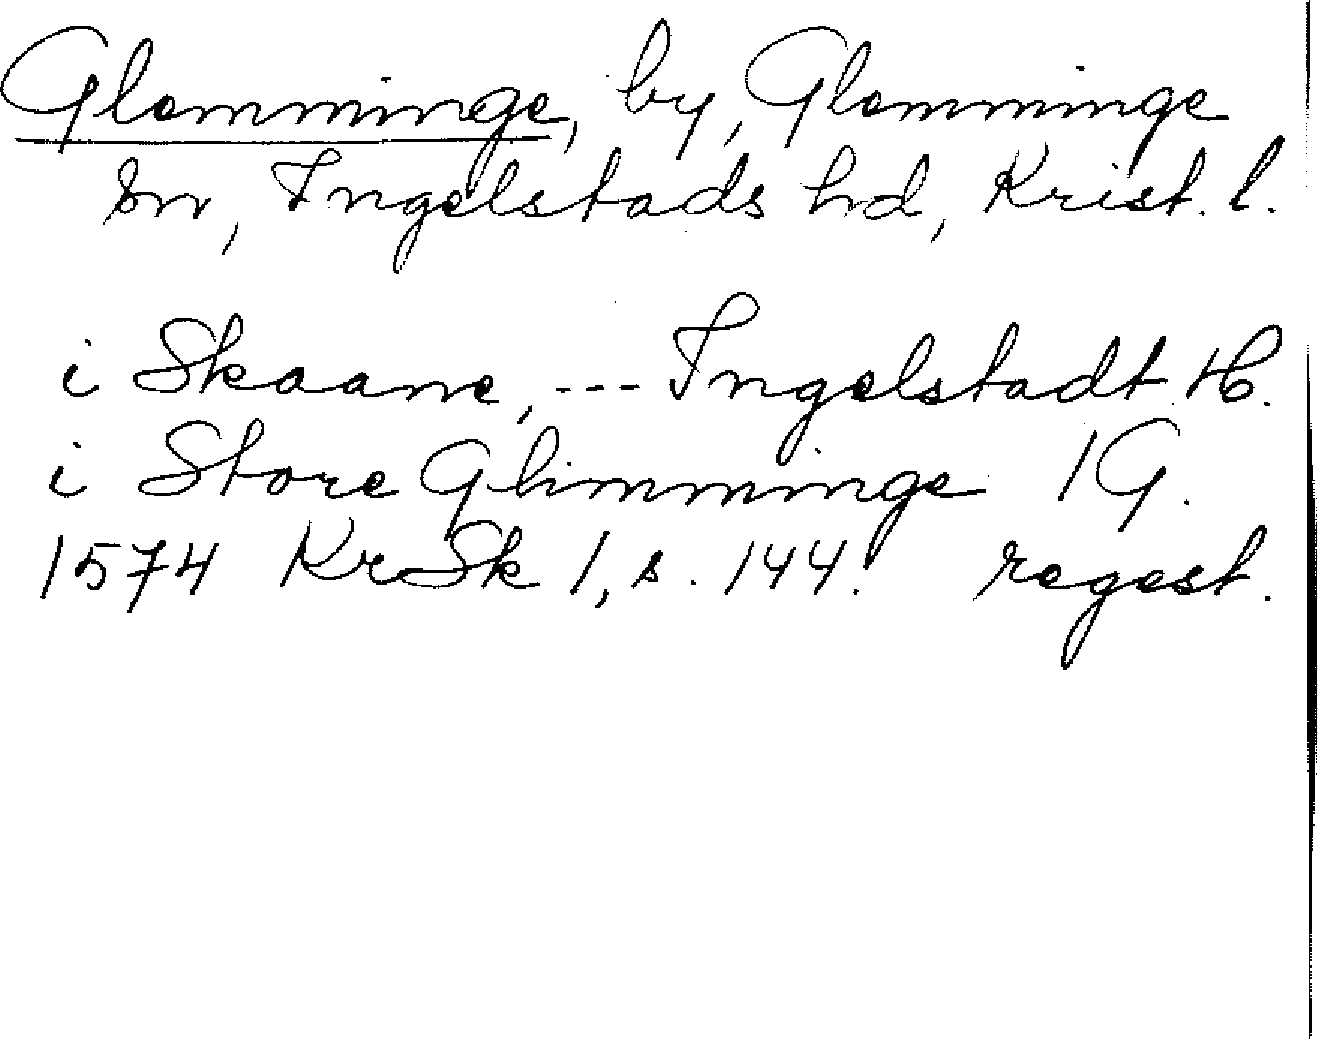 Glemminge, by, Glemminge
sn, Ingelstads hd, Krist. l.
i Skaane, --- Ingelstadt H.
i Store Glimminge 1 G.
1574 KrSk 1, s. 144. regest.